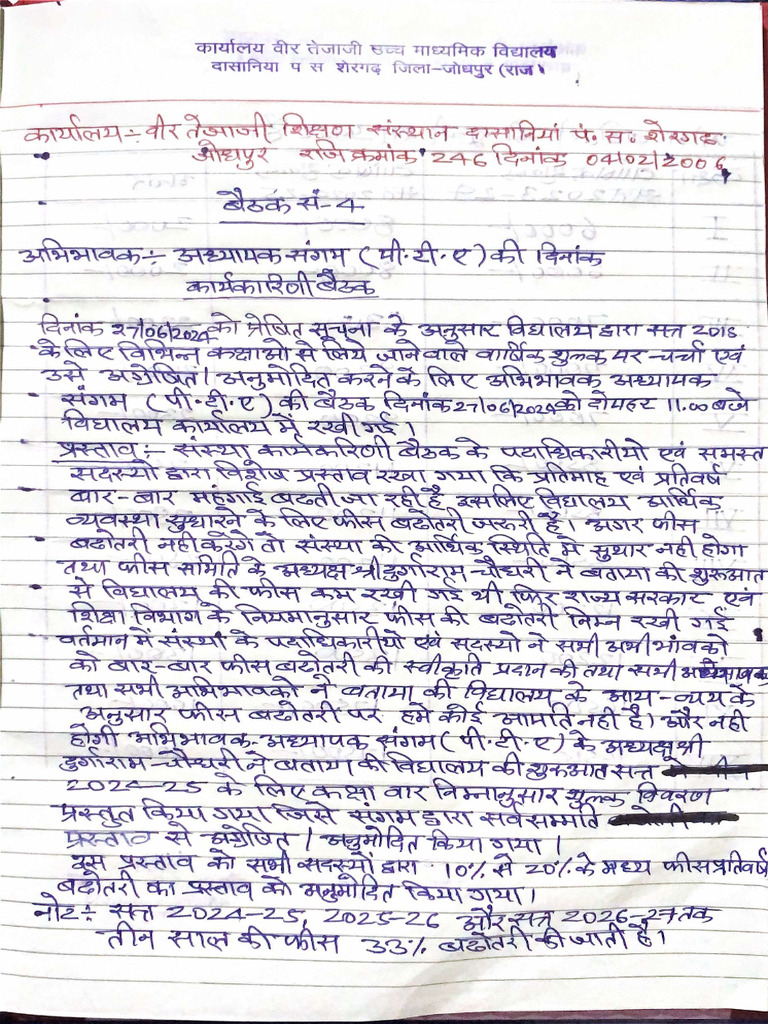 कार्यालय वीर तेजाजी उच्च माध्यमिक विद्यालय
दासानिया प स शेरगढ़ जिला-जोधपुर (राज
कार्यालय :- वीर तेजाजी शिक्षण संस्थान दासानियां पं. स. शेरगढ़
जोधपुर रजि क्रमांक 246 दिनांक 04/02/2006
बैठक सं-4
अभिभावक :- अध्यापक संगम (पी.टी.ए) की दिनांक
कार्यकारिणी बैठक
दिनांक 27/06/2024 को प्रेषित सूचना के अनुसार विद्यालय द्वारा सत्र
के लिए विभिन्न कक्षाओ से लिये जाने वाले वार्षिक शुल्क पर चर्चा एवं
उसे अग्रेषित / अनुमोदित करने के लिए अभिभावक अध्यापक
संगम (पी.टी.ए) की बैठक दिनांक 27/06/2024 को दोपहर 11.00 बजे
विद्यालय कार्यालय में रखी गई।
प्रस्ताव :- संस्था कार्यकारिणी बैठक के पदाधिकारीयो एवं समस्त
सदस्यो द्वारा विशेष प्रस्ताव रखा गया कि प्रतिमाह एवं प्रतिवर्ष
बार-बार महंगाई बढती जा रही है इसलिए विद्यालय आर्थिक
व्यवस्था सुधारने के लिए फीस बढोतरी जरूरी है। अगर फीस
बढोतरी नही करेगे तो संस्था की आर्थिक स्थिति मे सुधार नही होगा
तथा फीस समिति के अध्यक्ष श्री दुर्गाराम चौधरी ने बताया की शुरूआत
से विद्यालय की फीस कम रखी गई थी फिर राज्य सरकार एवं
शिक्षा विभाग के नियमानुसार फीस की बढोतरी निम्न रखी गई
वर्तमान में संस्था के पदाधिकारीयो एवं सदस्यो ने सभी अभीभांवको
को बार-बार फीस बढोतरी की स्वीकृति प्रदान की तथा सभी
तथा सभी अभिभावको ने बताया की विद्यालय के आय-व्यय के
अनुसार फीस बढोतरी पर हमे कोई आपति नही है। और नही
होगी अभिभावक अध्यापक संगम (पी.टी.ए) के अध्यक्ष श्री
दुर्गाराम चौधरी ने बताया की विद्यालय की शुरूआत सत्र
2024-25 के लिए कक्षा वार निम्नानुसार शुल्क विवरण
प्रस्तुत किया गया जिसे संगम द्वारा सर्वसम्मति
प्रस्ताव से अग्रेषित / अनुमोदित किया गया।
इस प्रस्ताव को सभी सदस्यों द्वारा 10% से 20% के मध्य फीस प्रतिवर्ष
बढोतरी का प्रस्ताव को अनुमोदित किया गया।
नोट :- सत्र 2024-25, 2025-26 और सत्र 2026-27 तक
तीन साल की फीस 33% बढोतरी की जाती है।